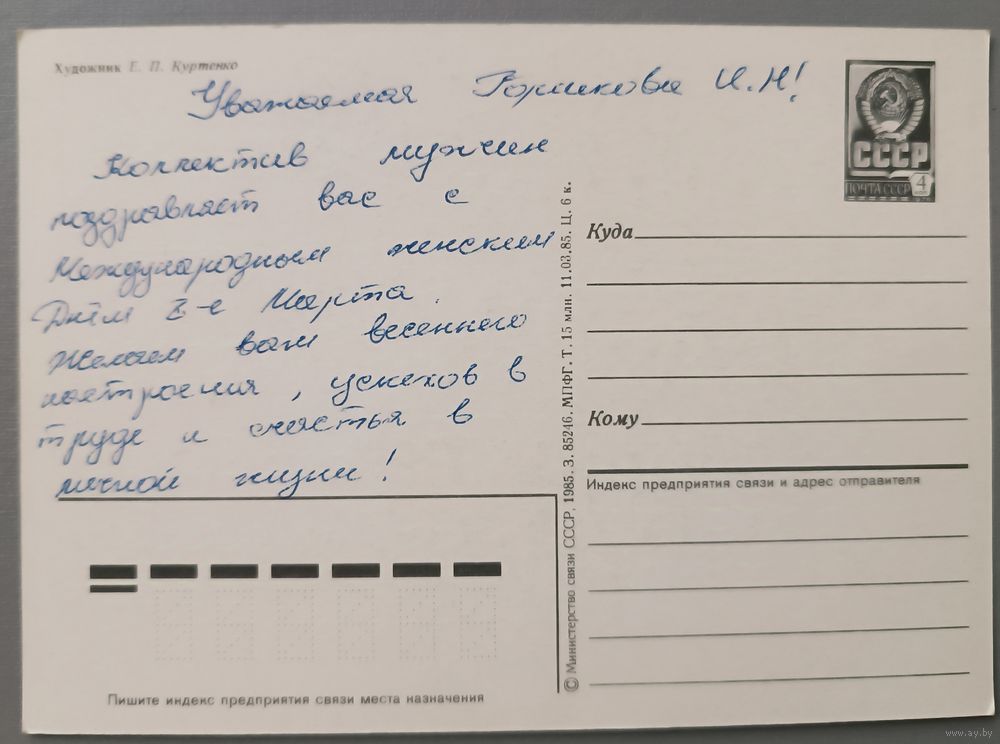 Художник Е. П. Куртенко
Уважаемая И.Н!
Коллектив мужчин
поздравляет вас с
Международным женским
Днём 8-е Марта.
Желаем вам весеннего
настроения, успехов в
труде и счастья в
личной жизни!
СССР
ПОЧТА СССР 4
Куда
Кому
Индекс предприятия связи и адрес отправителя
© Министерство связи СССР, 1985. З. 85246. МПФГ. Т. 15 млн. 11.03.85. Ц. 6 к.
Пишите индекс предприятия связи места назначения
www.ay.by